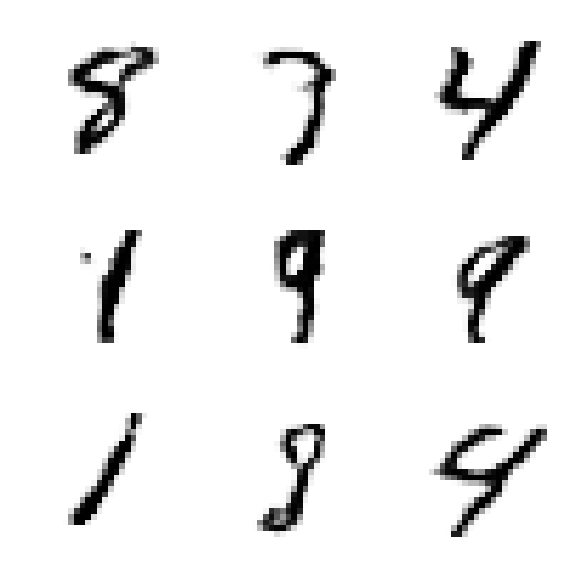 8 7 4
1 9 9
1 8 4